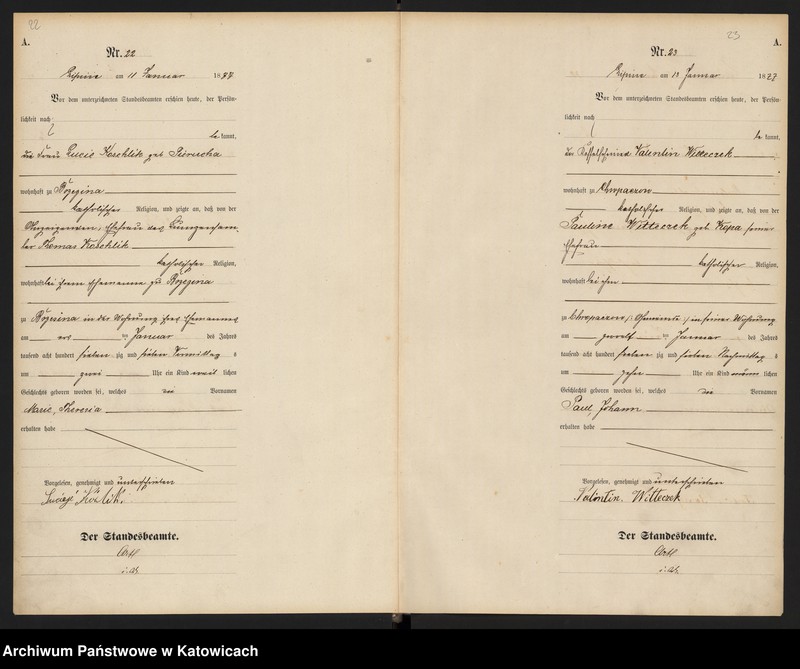 22
A.
Nr. 22
Lipine am 11 Januar 1877
Vor dem unterzeichneten Standesbeamten erschien heute, der Persön-
lichkeit nach
be kannt,
die Frau Lucie Koschlik geb. Pierucha
wohnhaft zu Bżezina
katholischer Religion, und zeigte an, daß von der
Ehefrau des
Thomas Koschlik
katholischer Religion,
wohnhaft bei ihrem Ehemanne zu Bżezina
zu Bżezina in der Wohnung ihres Ehemannes
am ten Januar des Jahres
tausend acht hundert sieben zig und sieben Vormittag s
um zwei Uhr ein Kind weib lichen
Geschlechts geboren worden sei, welches die Vornamen
Marie, Theresia
erhalten habe
Vorgelesen, genehmigt und unterschrieben
Der Standesbeamte.
23
A.
Nr. 23
Lipine am 13 Januar 1877
Vor dem unterzeichneten Standesbeamten erschien heute, der Persön-
lichkeit nach
be kannt,
der Valentin Witteczek
wohnhaft zu Chropaczow
katholischer Religion, und zeigte an, daß von der
Pauline Witteczek geb. Kepa seiner
Ehefrau
katholischer Religion,
wohnhaft bei ihm
zu Chropaczow, in seiner Wohnung
am zwölf ten Januar des Jahres
tausend acht hundert sieben zig und sieben Nachmittag s
um zehn Uhr ein Kind männ lichen
Geschlechts geboren worden sei, welches die Vornamen
Paul, Johann
erhalten habe
Vorgelesen, genehmigt und unterschrieben
Valentin Witteczek
Der Standesbeamte.
Archiwum Państwowe w Katowicach